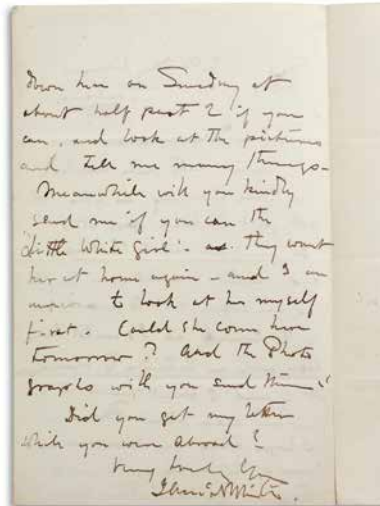 down here on Sunday at
about half past 2 if you
can, and look at the pictures
and tell me many things -
Meanwhile will you kindly
send me if you can the
"little White Girl" - as they want
her at home again - and I am
to look at her myself
first. Could she come here
tomorrow? And the Photo
graphs will you send them?
Did you get my letter
while you were abroad?
Very truly Yrs